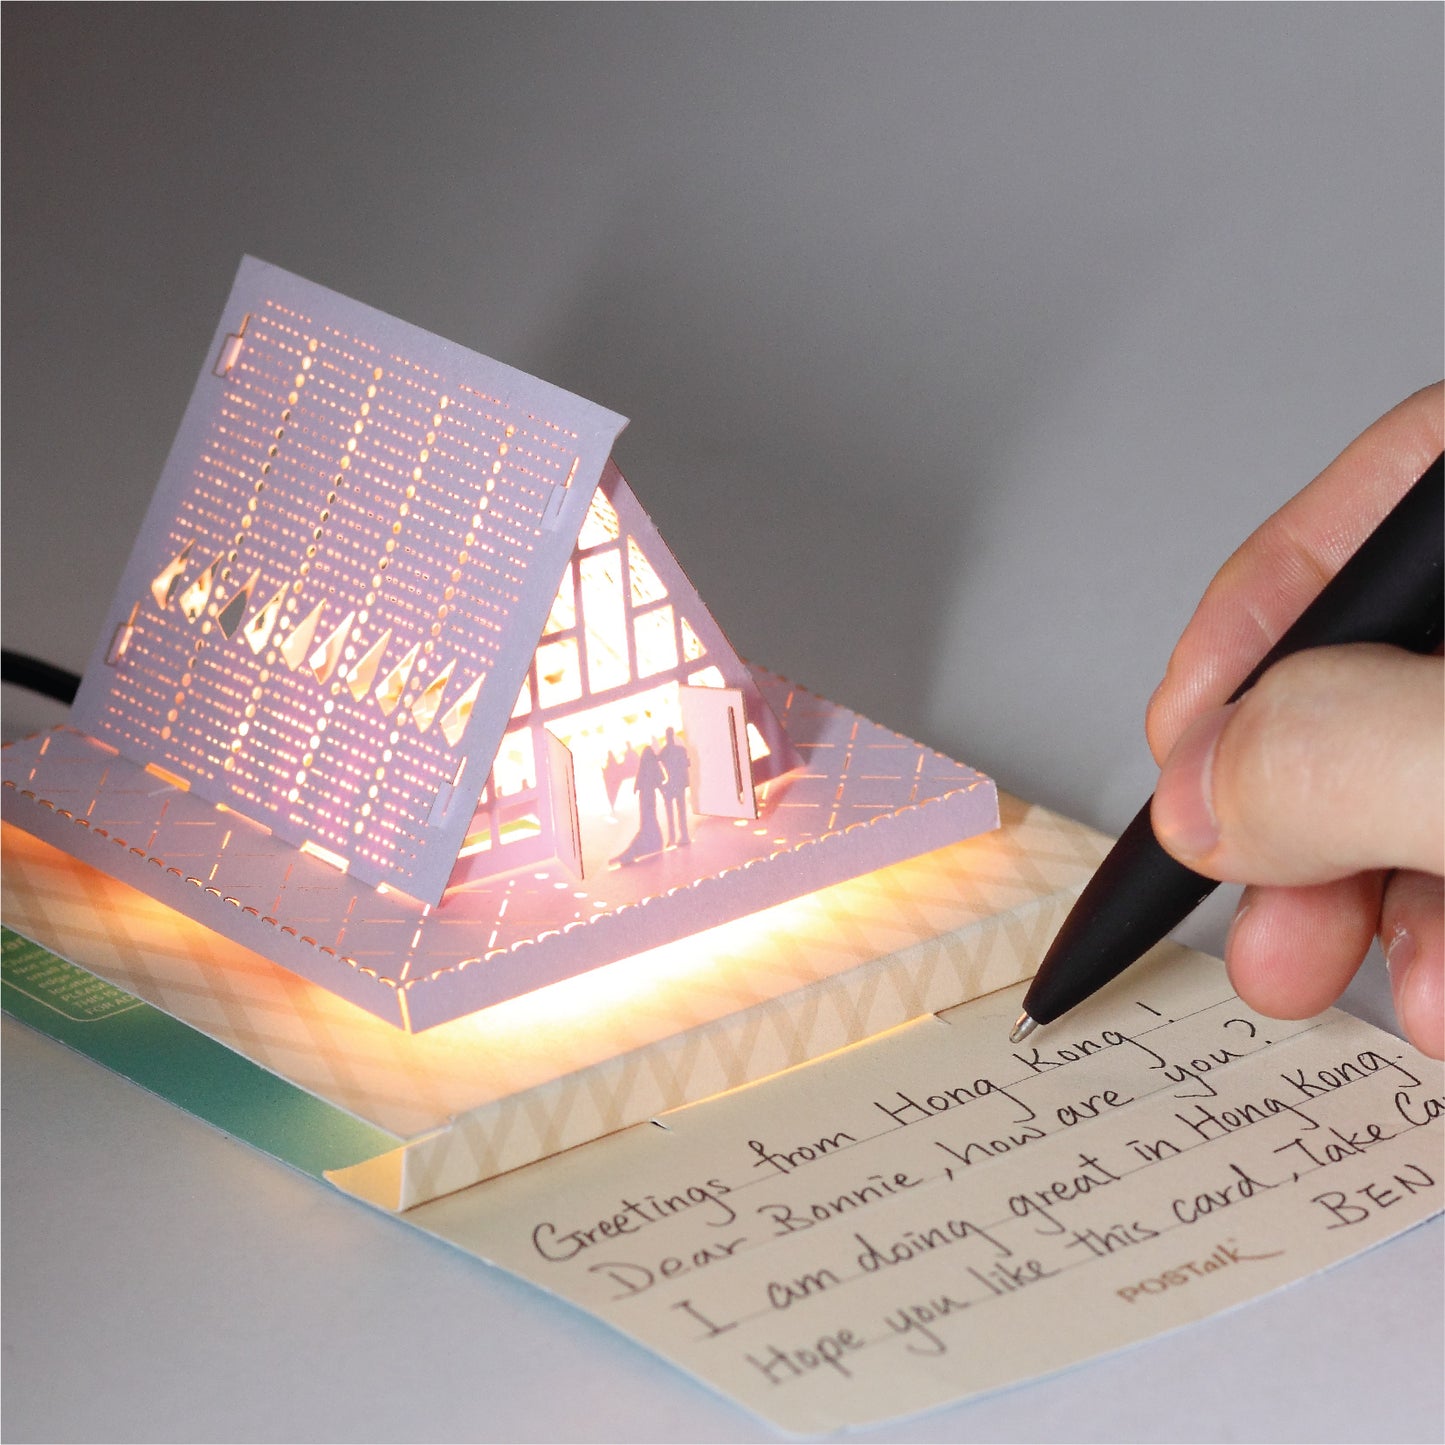 Greetings from Hong Kong !
Dear Bonnie , how are you ?
I am doing great in Hong Kong.
Hope you like this card , Take
BEN
POSTalk
PLEASE
FOR